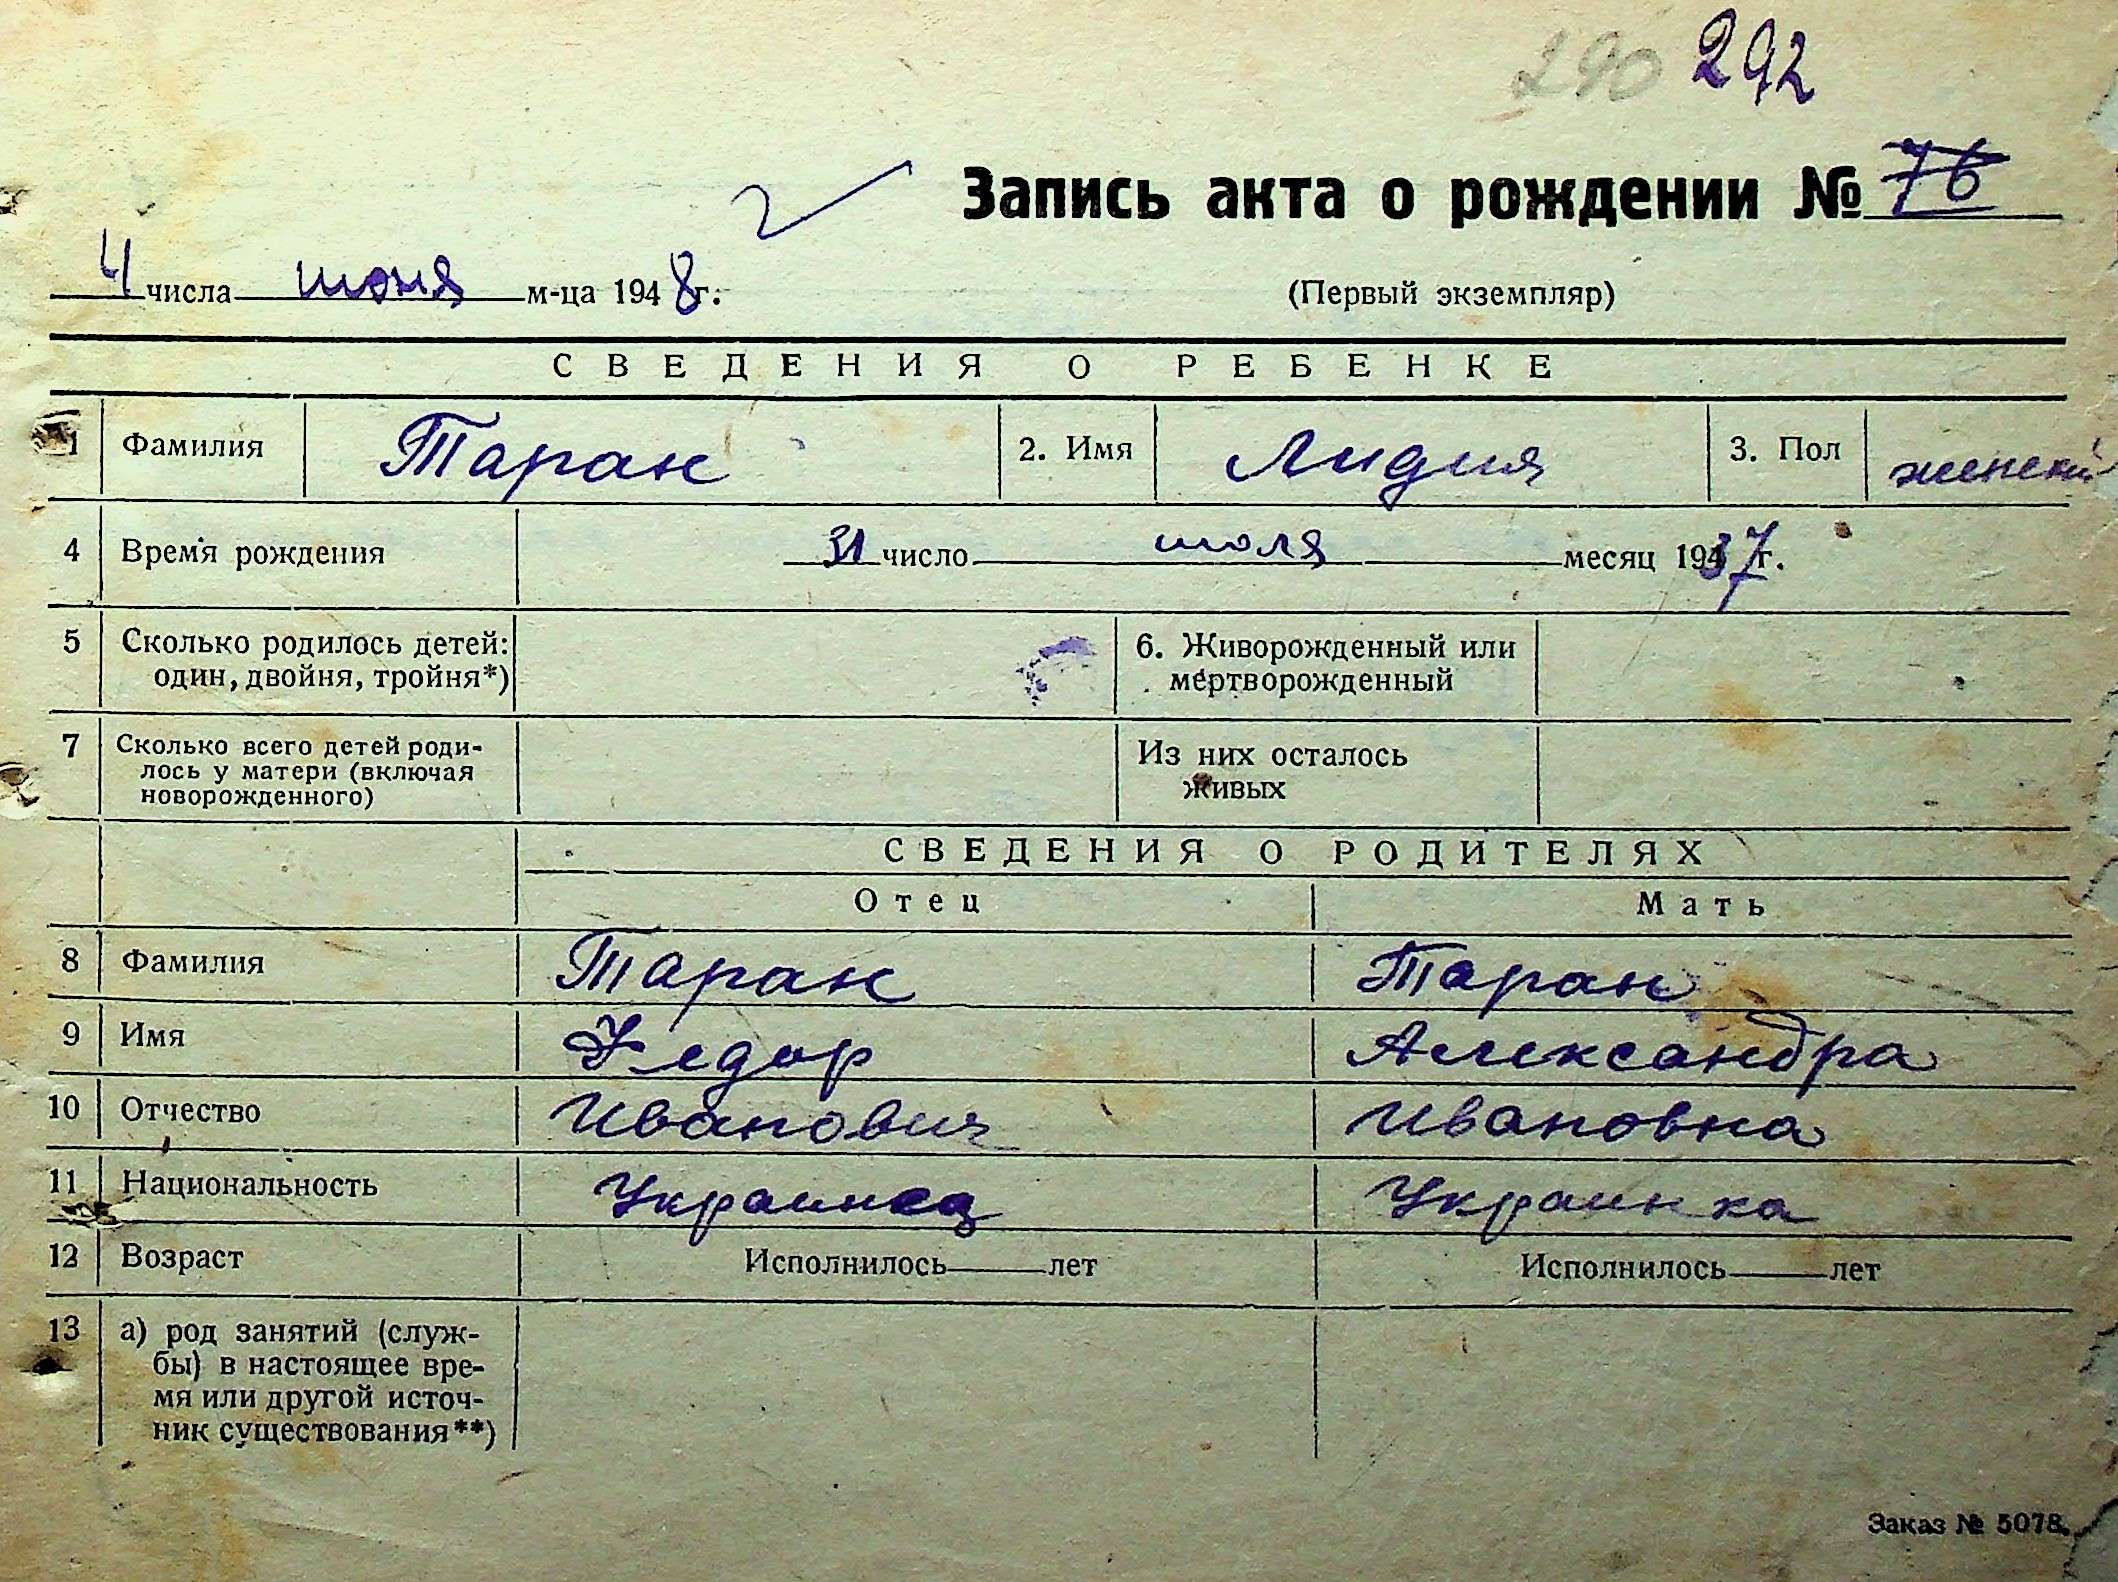 290 292
Запись акта о рождении № 76
4 числа июня м-ца 1948 г.
(Первый экземпляр)
СВЕДЕНИЯ О РЕБЕНКЕ
1 Фамилия Таран 2. Имя Лидия 3. Пол женский
4 Время рождения 31 число июля месяц 1937 г.
5 Сколько родилось детей: 6. Живорожденный или
один, двойня, тройня*) мертворожденный
7 Сколько всего детей роди- Из них осталось
лось у матери (включая живых
новорожденного)
СВЕДЕНИЯ О РОДИТЕЛЯХ
Отец Мать
8 Фамилия Таран Таран
9 Имя Федор Александра
10 Отчество Иванович Ивановна
11 Национальность Украинец Украинка
12 Возраст Исполнилось лет Исполнилось лет
13 а) род занятий (служ-
бы) в настоящее вре-
мя или другой источ-
ник существования**)
Заказ № 5078.